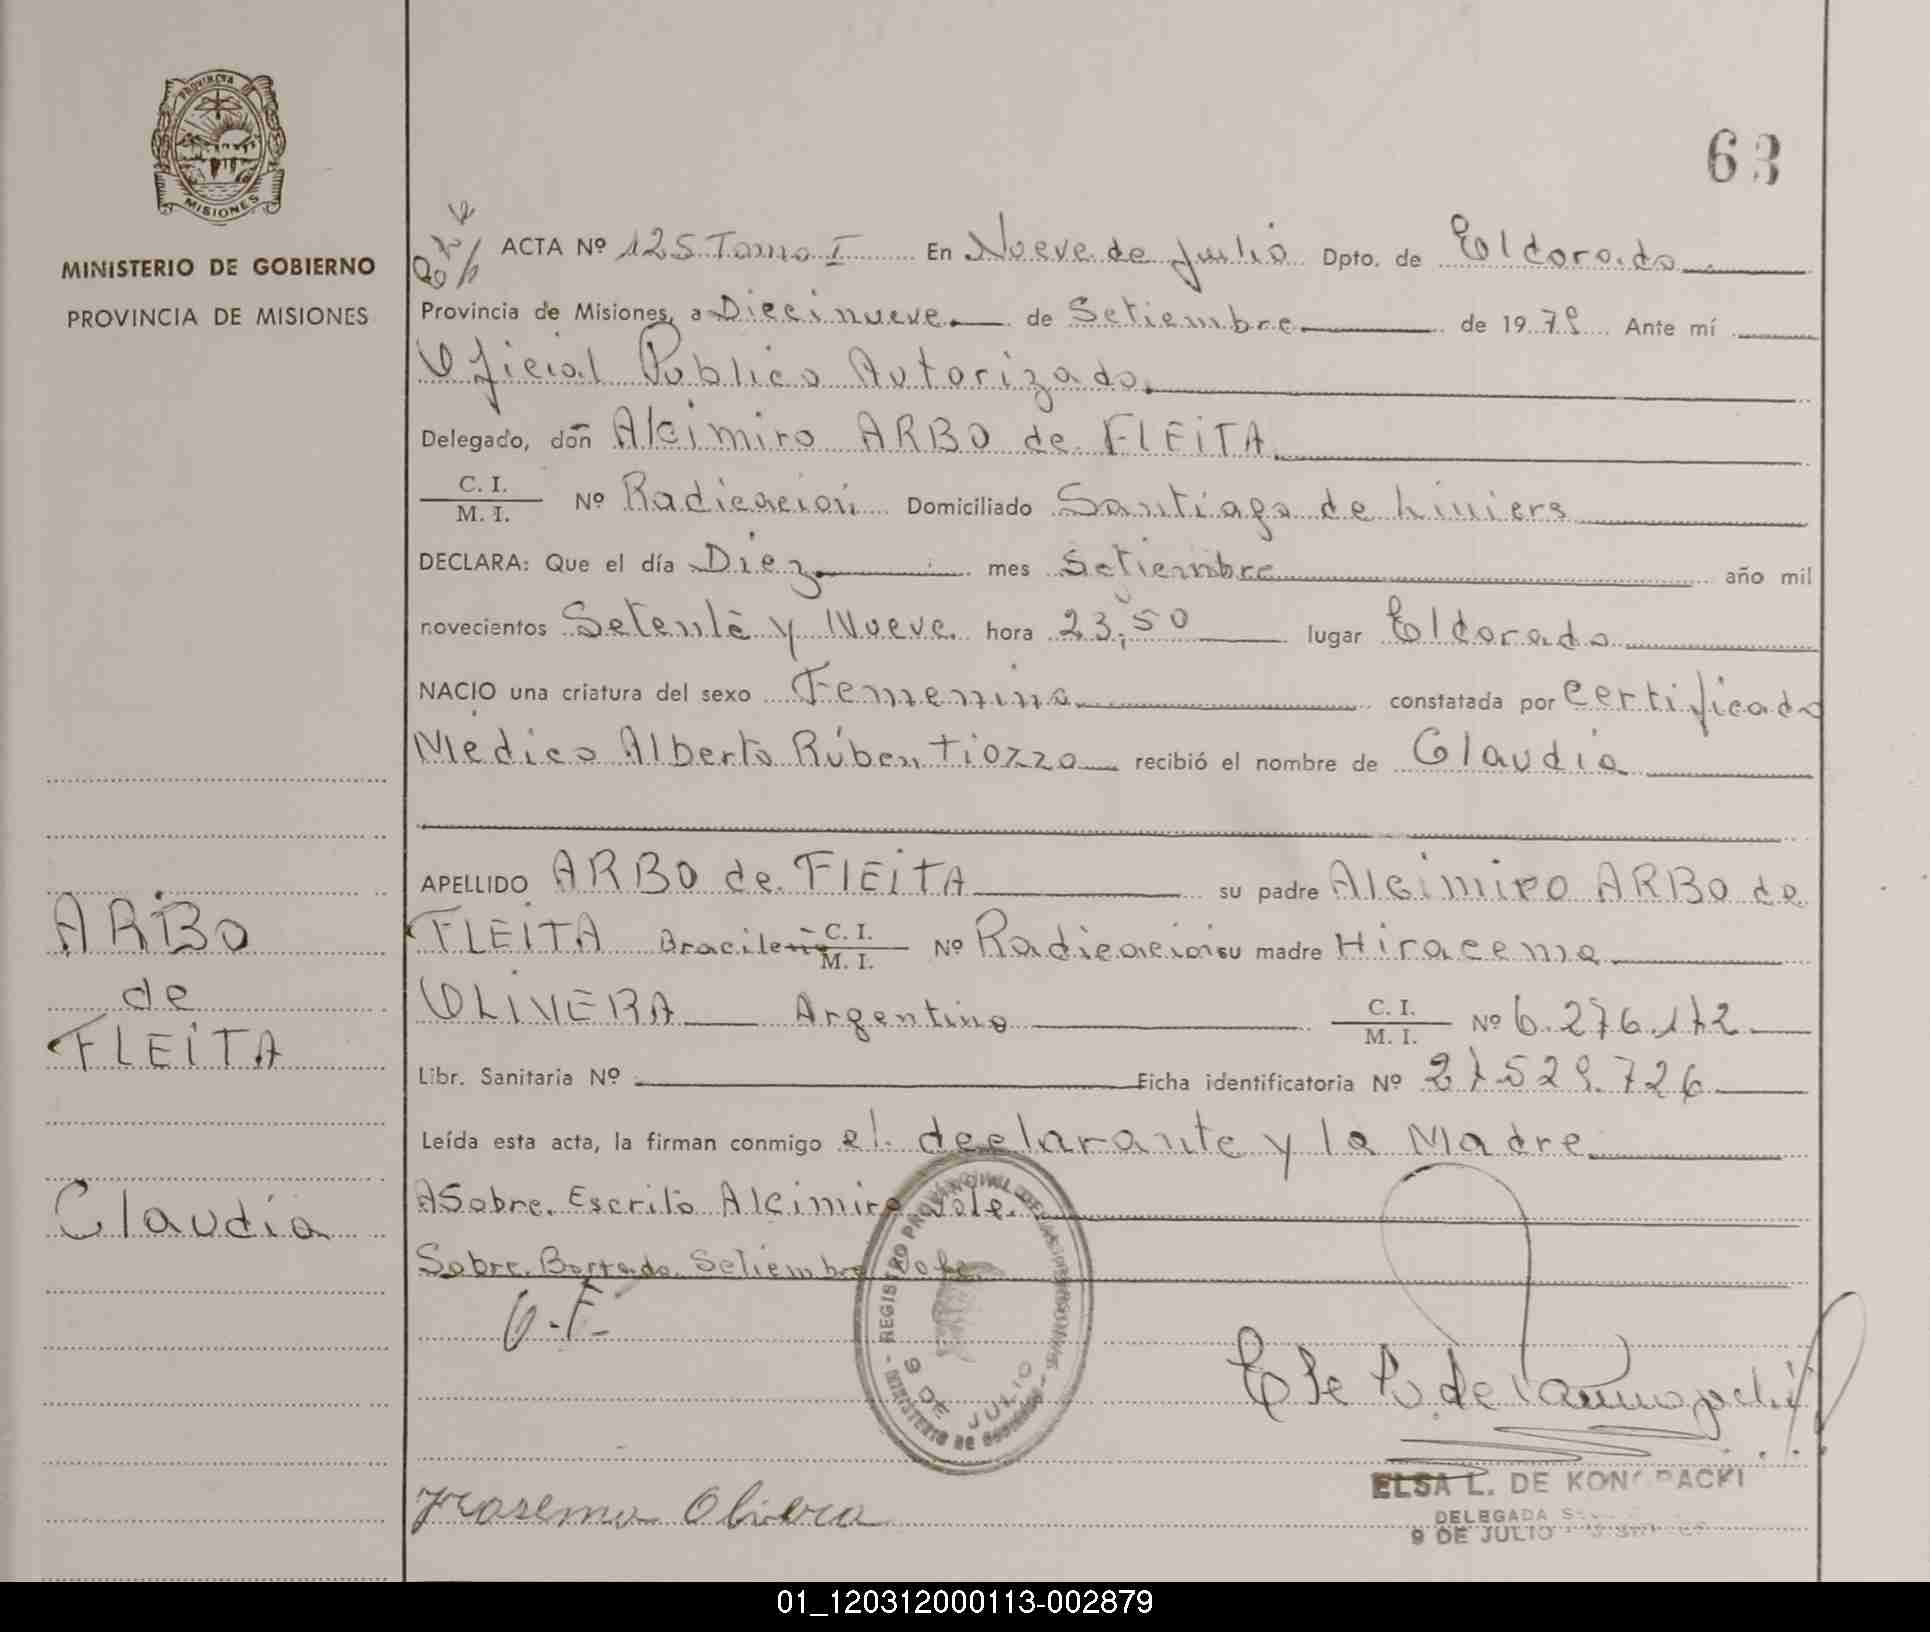 PROVINCIA DE
MISIONES
MINISTERIO DE GOBIERNO
PROVINCIA DE MISIONES
63
ACTA Nº 125 Tomo I En Nueve de Julio Dpto. de Eldorado
Provincia de Misiones, a Diecinueve de Setiembre de 1979 Ante mí
Oficial Público Autorizado
Delegado, don Alcimiro ARBO de FLEITA
C. I.
M. I. Nº Radicación Domiciliado Santiago de Liniers
DECLARA: Que el día Diez mes Setiembre año mil
novecientos Setenta y Nueve hora 23,50 lugar Eldorado
NACIO una criatura del sexo Femenino constatada por Certificado
Médico Alberto Rúben Tiozzo recibió el nombre de Claudia
APELLIDO ARBO de FLEITA su padre Alcimiro ARBO de
FLEITA Bracileño C. I. M. I. Nº Radicación su madre Hiracema
OLIVERA Argentino C. I. M. I. Nº 6.276.172
Libr. Sanitaria Nº Ficha identificatoria Nº 27.529.726
Leída esta acta, la firman conmigo el declarante y la Madre
ASobre Escrito Alcimiro Vole
Sobre Borrado Setiembre Vole
ARBO
de
FLEITA
Claudia
REGISTRO PROVINCIAL DE LAS PERSONAS
MINISTERIO DE GOBIERNO
9 DE JULIO
Olivera
ELSA L. DE KONOPACKI
DELEGADA
9 DE JULIO
01_120312000113-002879